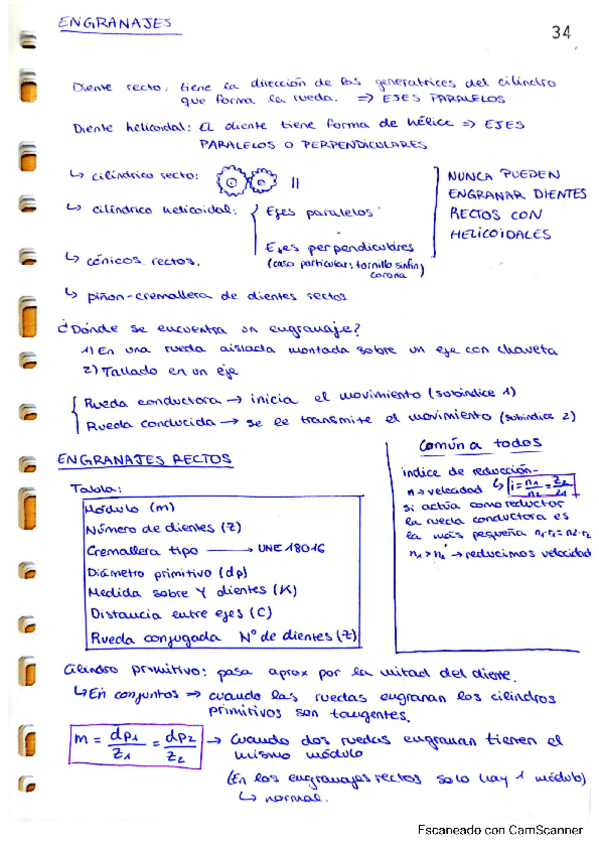 ENGRANAJES
34
Diente recto: tiene la dirección de las generatrices del cilindro
que forma la rueda. ⇒ EJES PARALELOS
Diente helicoidal: El diente tiene forma de hélice ⇒ EJES
PARALELOS O PERPENDICULARES
↳ cilíndrico recto:
↳ cilíndrico helicoidal: { Ejes paralelos
Ejes perpendiculares
(caso particular; tornillo sinfín)
corona
↳ cónicos rectos.
↳ piñon-cremallera de dientes rectos
NUNCA PUEDEN
ENGRANAR DIENTES
RECTOS CON
HELICOIDALES
¿Dónde se encuentra un engranaje?
1) En una rueda aislada montada sobre un eje con chaveta
2) Tallado en un eje
Rueda conductora → inicia el movimiento (subíndice 1)
Rueda conducida → se le transmite el movimiento (subíndice 2)
ENGRANAJES RECTOS
Tabla:
Módulo (m)
Número de dientes (z)
Cremallera tipo → UNE 18016
Diámetro primitivo (dp)
Medida sobre Y dientes (K)
Distancia entre ejes (C)
Rueda conjugada Nº de dientes (z)
Común a todos
índice de reducción-
n → velocidad ↳ i = n1/n2 = z2/z1
si actúa como reductor
la rueda conductora es
la más pequeña n1·r1 = n2·r2
n1 > n2 → reducimos velocidad
Cilindro primitivo: pasa aprox por la mitad del diente.
↳ En conjuntos ⇒ cuando las ruedas engranan los cilindros
primitivos son tangentes.
m = dp1/z1 = dp2/z2 → Cuando dos ruedas engranan tienen el
mismo módulo
(En los engranajes rectos solo hay 1 módulo)
↳ normal.
Escaneado con CamScanner